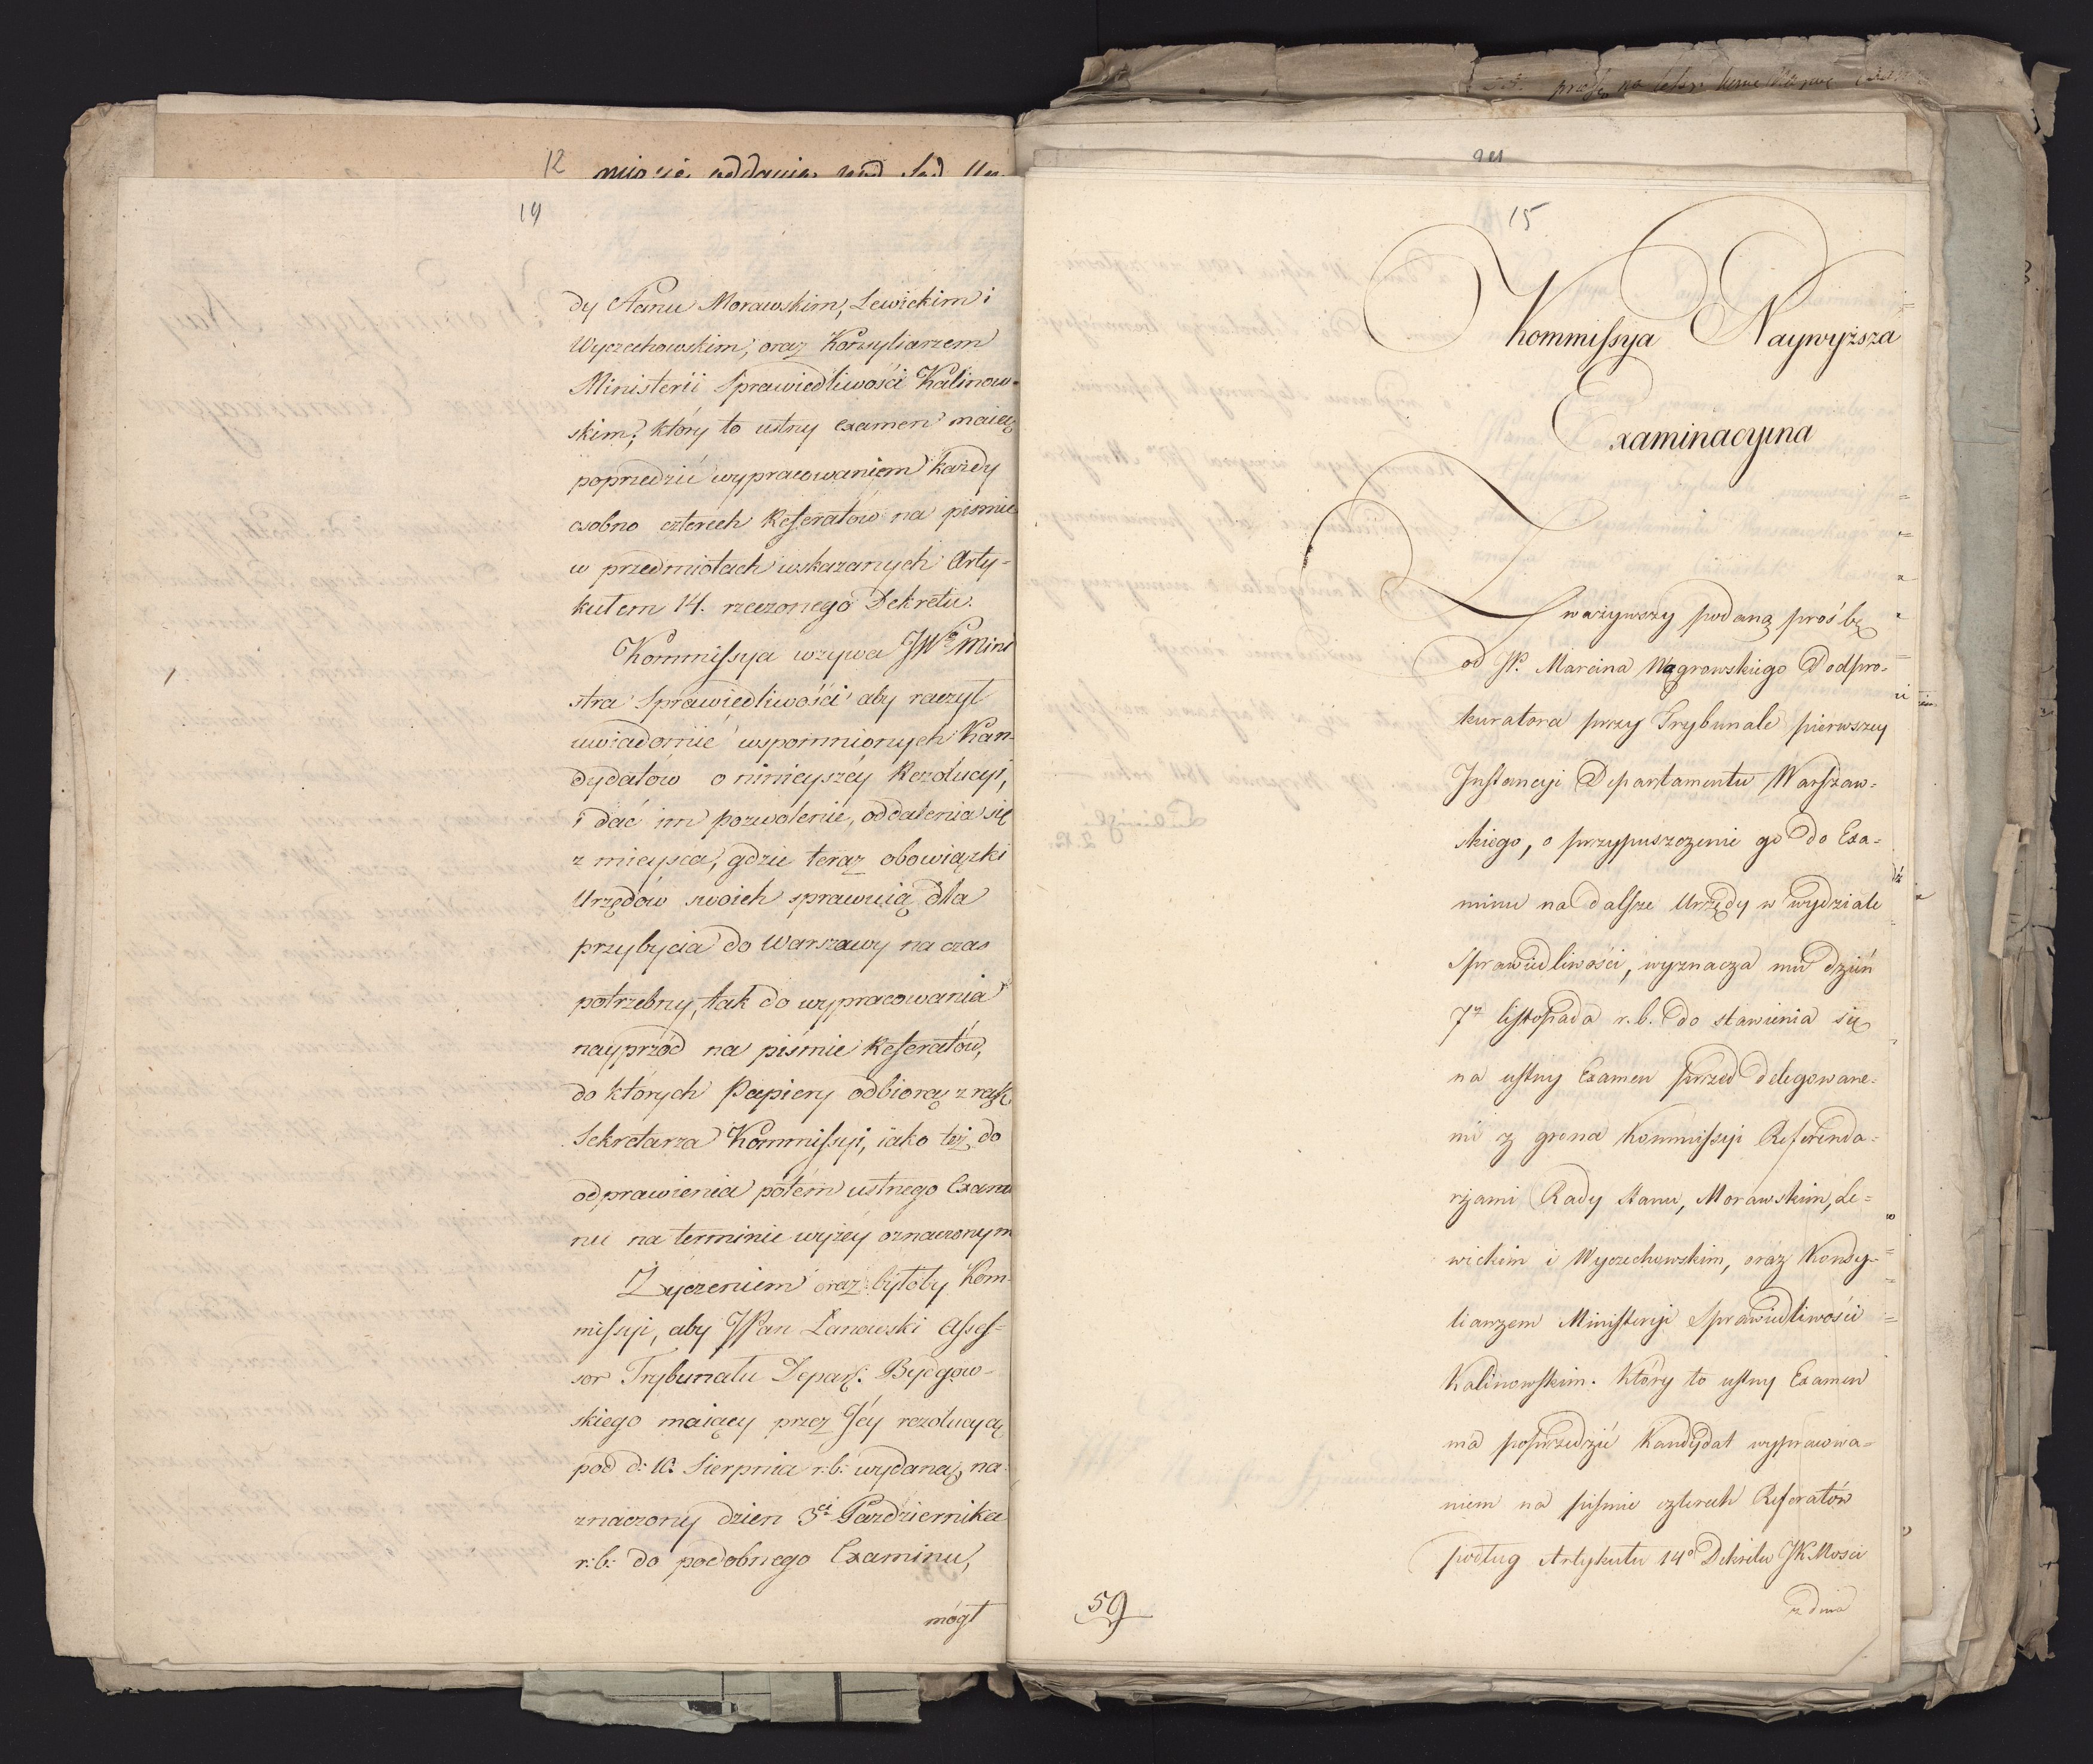 12
14
dy Stanu Morawskim, Lewickim i
Wyczechowskim, oraz Konsyliarzem
Ministerii Sprawiedliwości Kalinow-
skim, który to ustny examen maią
poprzedzić wypracowaniem każdy
osobno czterech Referatów na pismie
w przedmiotach wskazanych Arty-
kułem 14. rzeczonego Dekretu.
Kommissya wzywa JWo Mini
stra Sprawiedliwości aby raczył
uwiadomić wspomnionych Kan-
dydatów o ninieyszéy Rezolucyi,
i dać im pozwolenie, oddalenia się
z mieysca, gdzie teraz obowiązki
Urzędów swoich sprawuią dla
przybycia do Warszawy na czas
potrzebny, tak do wypracowania
nayprzód na pismie Referatów,
do których Papiery odbiorą z rąk
Sekretarza Kommissyi, iako też do
odprawienia potém ustnego Exami
nu na terminie wyżéy oznaczonym
Życzeniem oraz byłoby Kom-
missyi, aby JPan Łanowski Asses-
sor Trybunału Depart: Bydgow-
skiego maiący przez Jéy rezolucyą
pod d: 10. Sierpnia r:b: wydaną, na-
znaczony dzien 3ci Pazdziernika
r:b: do podobnego Examinu,
mógł
15
Kommissya Naywyższa
Examinacyina
Zważywszy podaną prośbę
od JP. Marcina Wągrowskiego Podpro-
kuratora przy Trybunale pierwszey
Instancyi Departamentu Warszaw-
skiego, o przypuszczenie go do Exa-
minu na dalsze Urzędy w wydziale
Sprawiedliwości, wyznacza mu dzień
7y listopada r.b. do stawienia się
na ustny Examen przed delegowane-
mi z grona Kommissyi Referenda-
rzami Rady Stanu, Morawskim, Le-
wickim i Wyczechowskim, oraz Konsy-
liarzem Ministeryi Sprawiedliwości
Kalinowskim. Który to ustny Examen
ma poprzedzić Kandydat wypracowa-
niem na pismie czterech Referatów
podług Artykułu 14o Dekretu JKMości
z dnia
59